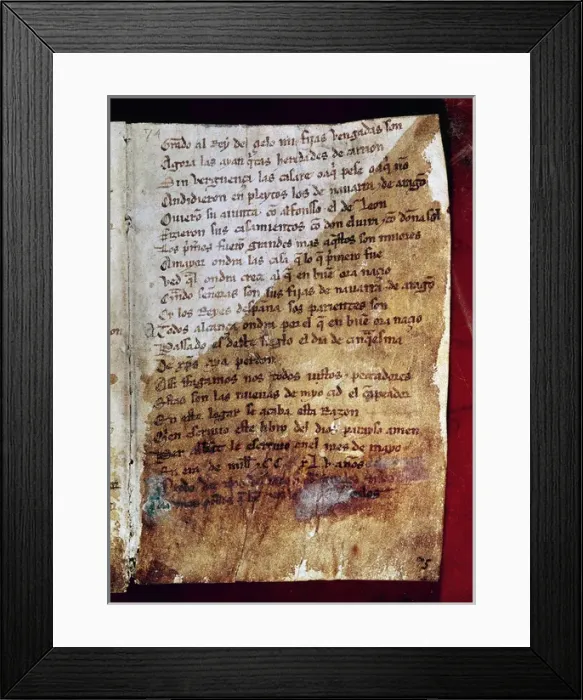 74
Grado al Rey del çielo mis fijas vengadas son
Agora las ayan qitas heredades de carrion
Sin verguença las casare o aqi pese o aqi nõ
Andidieron en pleytos los de nauarra τ de aragõ
Ouierõ su aiunta cõ alfonsso el de Leon
Fizieron sus casamientos cõ don eluira τ cõ doña sol
Los pmos fuerõ grandes mas aqstos son miiores
A mayor ondra las casa q lo q pimero fue
Ved ql ondra creçe al q en buẽ ora naçio
Qndo señoras son sus fijas de nauarra τ de aragõ
Oy los Reyes despaña sos parientes son
A Todos alcança ondra por el q en buẽ ora naçio
Passado es deste sieglo el dia de cinqesma
De xpus aya perdon
Assi ffagamos nos todos iustos τ peccadores
Estas son las nueuas de myo çid el canpeador
En este logar se acaba esta Razon
Qien escriuio este libro del dios parayso amen
Per abbat le escriuio enel mes de mayo
En era de mill τ CC xL v años